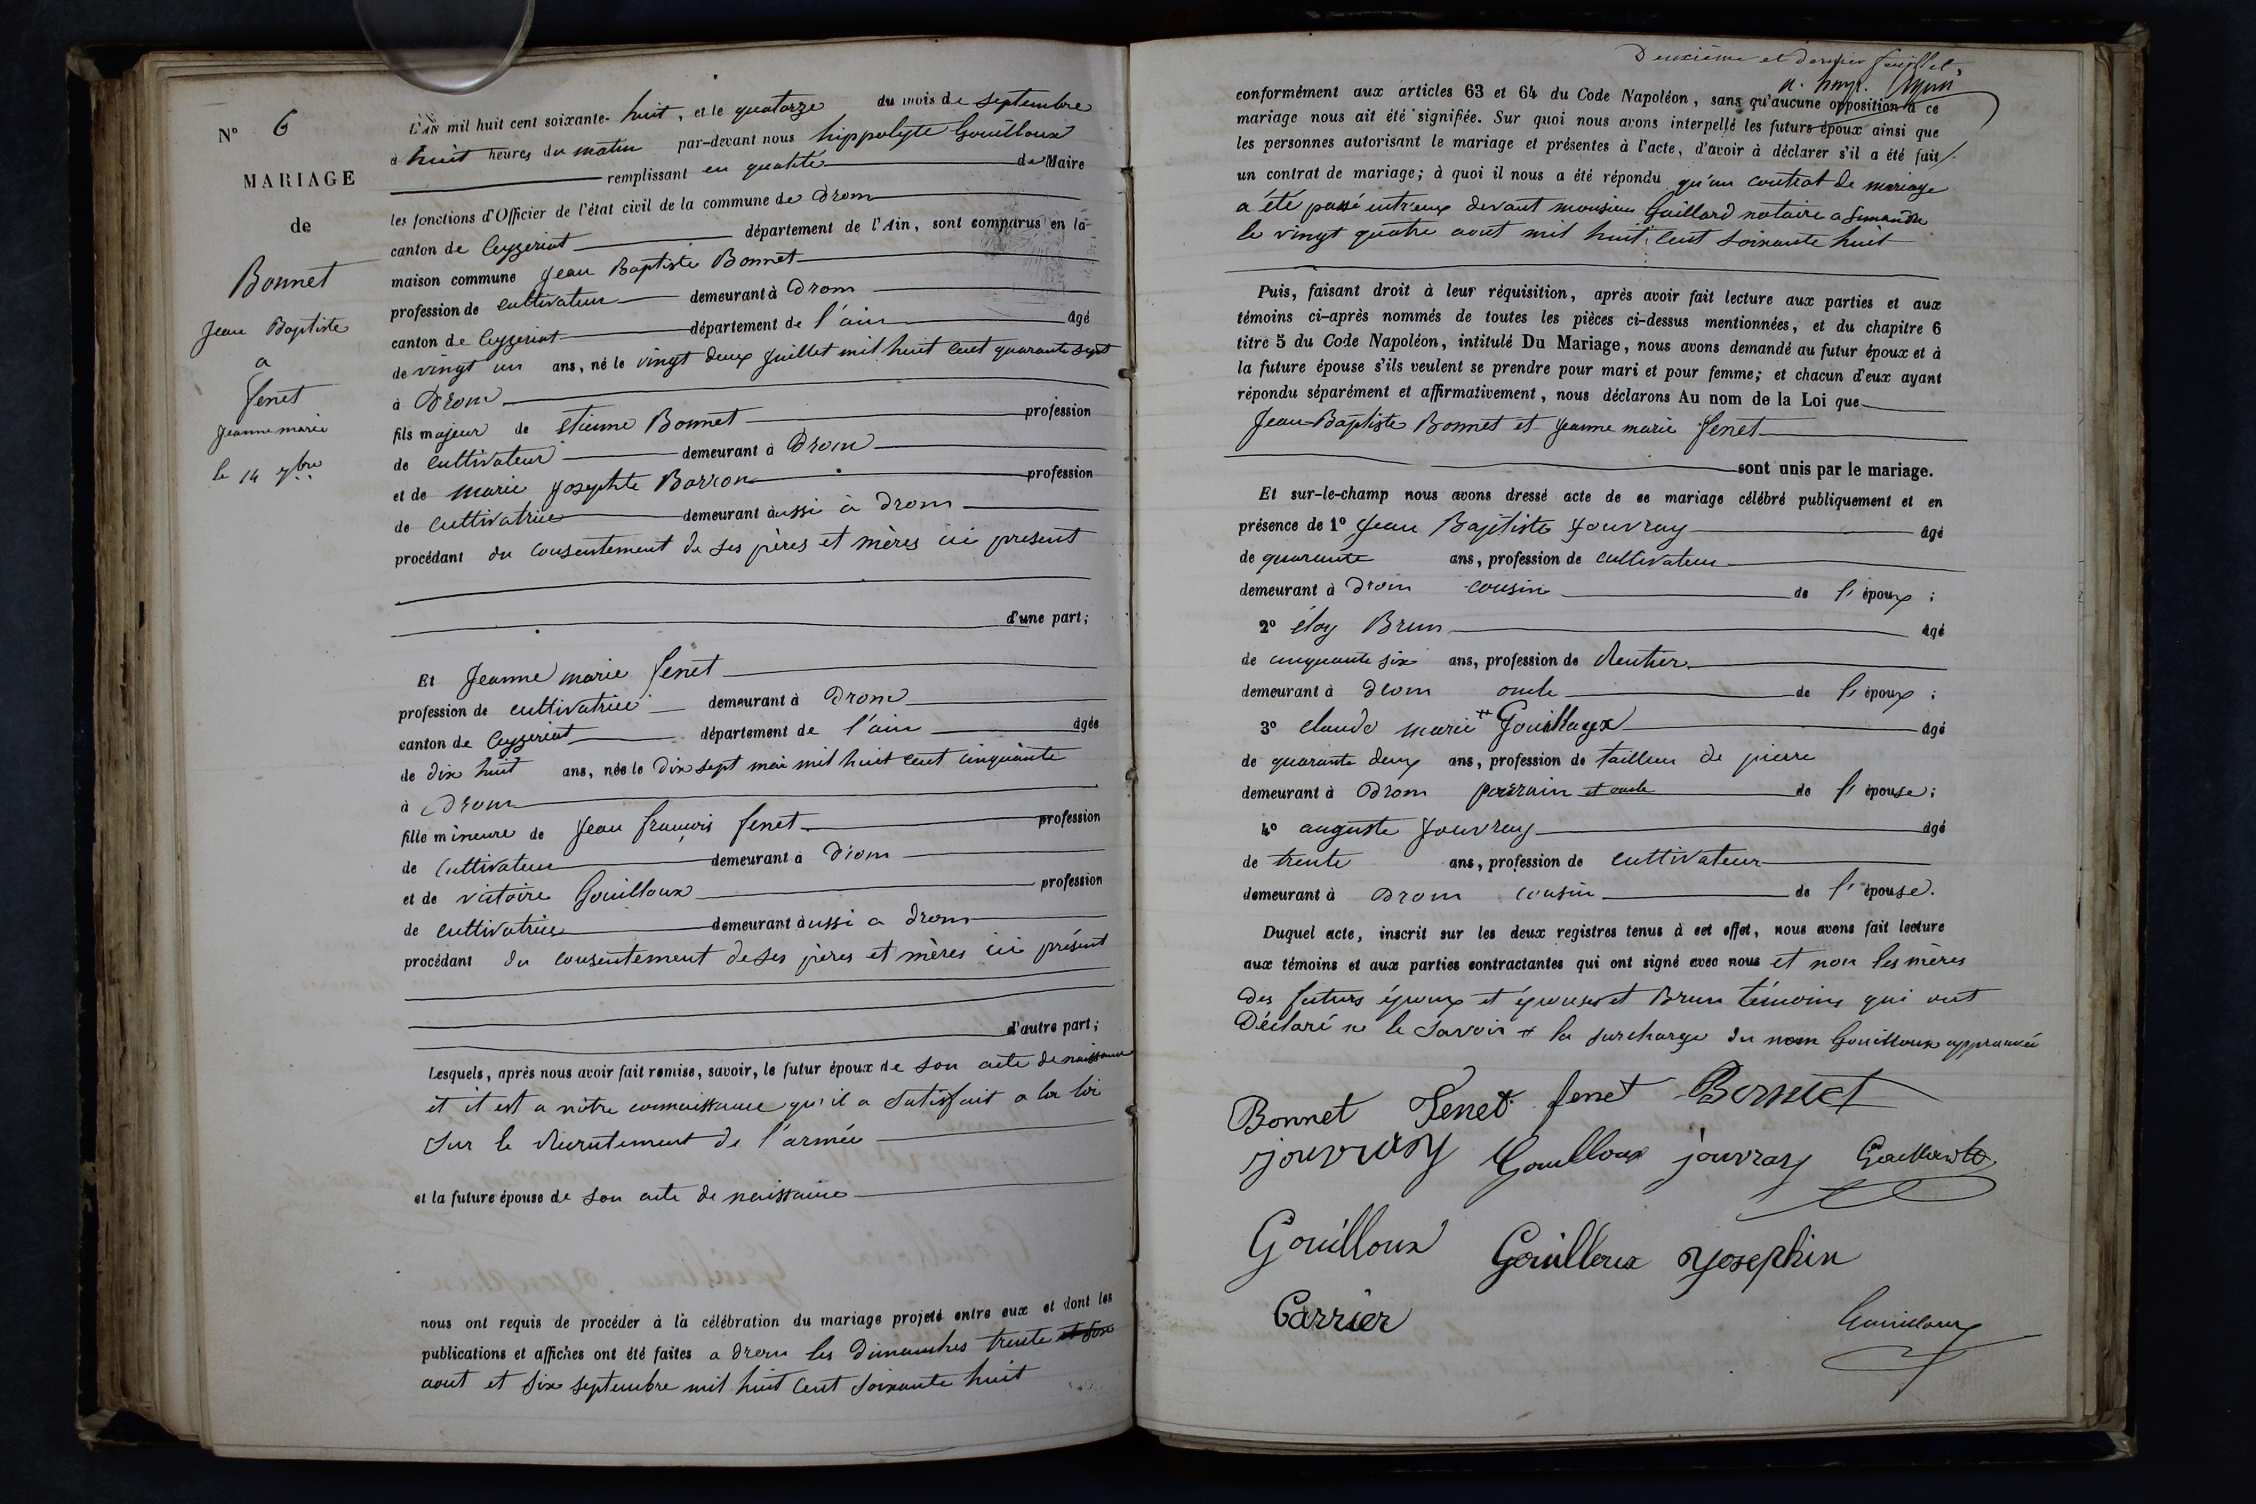 N° 6
MARIAGE
de
Bonnet
Jean Baptiste
a
fenet
jeanne marie
le 14 7bre
L'AN mil huit cent soixante-huit, et le quatorze du mois de septembre
à huit heures du matin par-devant nous hippolyte Gouilloux
remplissant en qualité de Maire
les fonctions d'Officier de l'état civil de la commune de Drom
canton de Ceyzeriat département de l'Ain, sont comparus en la
maison commune Jean Baptiste Bonnet
profession de cultivateur demeurant à Drom
canton de Ceyzeriat département de l'ain âgé
de vingt un ans, né le vingt deux juillet mil huit cent quarante sept
à Drom
fils majeur de etienne Bonnet profession
de cultivateur demeurant à Drom
et de marie josephte Barron profession
de cultivatrice demeurant aussi à drom
procédant du consentement de ses pères et mères ici present
d'une part;
Et Jeanne marie fenet
profession de cultivatrice demeurant à Drom
canton de Ceyzeriat département de l'ain âgée
de dix huit ans, née le Dix sept mai mil huit cent cinquante
à Drom
fille mineure de Jean françois fenet profession
de cultivateur demeurant à Drom
et de victoire Gouilloux profession
de cultivatrice demeurant aussi a drom
procédant du consentement de ses pères et mères ici présent
d'autre part;
Lesquels, après nous avoir fait remise, savoir, le futur époux de son acte de naissance
et it est a nôtre connaissance qu'il a satisfait a la loi
sur le recrutement de l'armée
et la future épouse de son acte de naissance
nous ont requis de procéder à la célébration du mariage projeté entre eux et dont les
publications et affiches ont été faites a drom les Dimanches trente et six
aout et six septembre mil huit cent soixante huit
Deuxième et dernier feuillet
conformément aux articles 63 et 64 du Code Napoléon, sans qu'aucune opposition à ce
mariage nous ait été signifiée. Sur quoi nous avons interpellé les futurs époux ainsi que
les personnes autorisant le mariage et présentes à l'acte, d'avoir à déclarer s'il a été fait
un contrat de mariage; à quoi il nous a été répondu qu'un contrat de mariage
a été passé entr'eux devant monsieur Gaillard notaire a Simandre
le vingt quatre aout mil huit cent soixante huit
Puis, faisant droit à leur réquisition, après avoir fait lecture aux parties et aux
témoins ci-après nommés de toutes les pièces ci-dessus mentionnées, et du chapitre 6
titre 5 du Code Napoléon, intitulé Du Mariage, nous avons demandé au futur époux et à
la future épouse s'ils veulent se prendre pour mari et pour femme; et chacun d'eux ayant
répondu séparément et affirmativement, nous déclarons Au nom de la Loi que
Jean-Baptiste Bonnet et jeanne marie fenet
sont unis par le mariage.
Et sur-le-champ nous avons dressé acte de ce mariage célébré publiquement et en
présence de 1° Jean Baptiste jouvray âgé
de quarante ans, profession de cultivateur
demeurant à Drom cousin de l'époux;
2° éloy Brun âgé
de cinquante six ans, profession de Rentier
demeurant à Drom oncle de l'époux;
3° claude marie # Gouilloux âgé
de quarante deux ans, profession de tailleur de pierre
demeurant à Drom parrain et oncle de l'épouse;
4° auguste jouvray âgé
de trente ans, profession de cultivateur
demeurant à Drom cousin de l'épouse.
Duquel acte, inscrit sur les deux registres tenus à cet effet, nous avons fait lecture
aux témoins et aux parties contractantes qui ont signé avec nous et non les mères
des futurs époux et épouse et Brun témoins qui ont
Déclaré ne le savoir # la surcharge du nom Gouilloux approuvée
Bonnet Fenet fenet Bonnet
jouvray Gouilloux jouvray
Gouilloux Gouilloux Josephin
Carrier Gouilloux